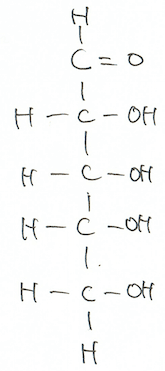 H
C = O
H - C - OH
H - C - OH
H - C - OH
H - C - OH
H